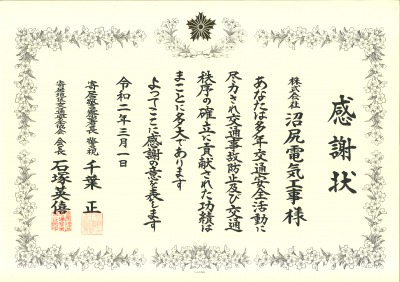 感謝状
株式会社 沼尻電気工事 様
あなたは多年交通安全活動に
尽力され交通事故防止及び交通
秩序の確立に貢献された功績は
まことに多大であります
よってここに感謝の意を表します
令和二年三月一日
寄居警察署長 警視 千葉 正
会長 石塚英信